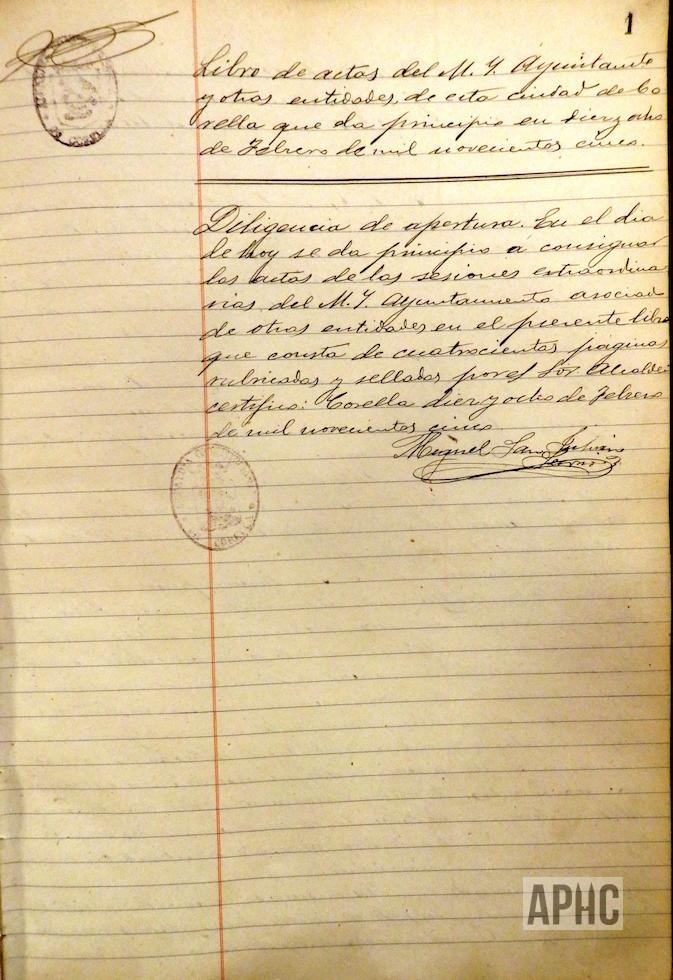 1
Libro de actas del M. Y. Ayuntamto
y otras entidades, de esta ciudad de Co
rella que da principio en diez y ocho
de Febrero de mil novecientos cinco.
Diligencia de apertura. En el dia
de hoy se da principio a consignar
las actas de las sesiones estraordina
rias del M. Y. Ayuntamiento asociado
de otras entidades en el presente libro
que consta de cuatrocientas paginas
rubricadas y selladas por el Sor. Alcalde:
certifico: Corella diez y ocho de Febrero
de mil novecientos cinco
Miguel San Julian
APHC